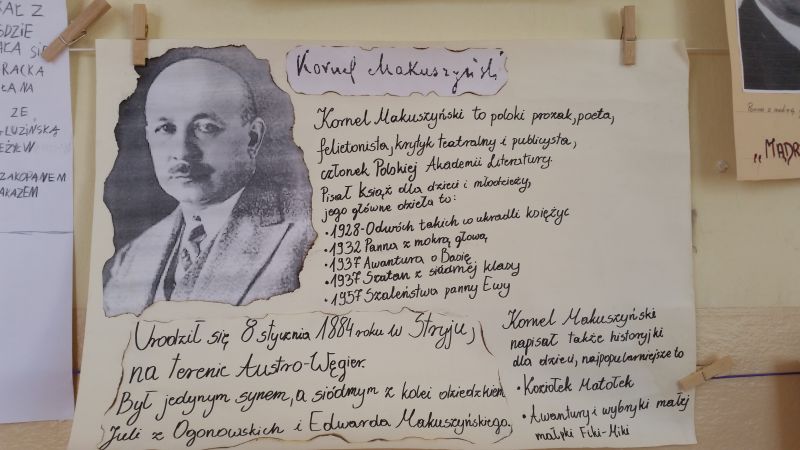 AŁ Z
GDZIE
AŁA SIĘ
RACKA
ŁANA
ZE
GLUZIŃSKĄ
EŻYŁW
ZAKOPANEM
AKAZEM
Kornel Makuszyński
Kornel Makuszyński to polski prozaik, poeta,
felietonista, krytyk teatralny i publicysta,
członek Polskiej Akademii Literatury.
Pisał książ dla dzieci i młodzieży,
jego główne dzieła to:
• 1928-Odwóch takich co ukradli księżyc
• 1932 Panna z mokrą głową
• 1937 Awantura o Basię
• 1937 Szatan z siódmej klasy
• 1957 Szaleństwa panny Ewy
Urodził się 8 stycznia 1884 roku w Stryju,
na terenie Austro-Węgier.
Był jedynym synem, a siódmym z kolei dzieckiem
Juli z Ogonowskich i Edwarda Makuszyńskiego.
Kornel Makuszyński
napisał także historyjki
dla dzieci, najpopularniejsze to
• Koziołek Matołek
• Awantury i wybryki małej
małpki Fiki-Miki
Panna z mokrą
"MĄDR